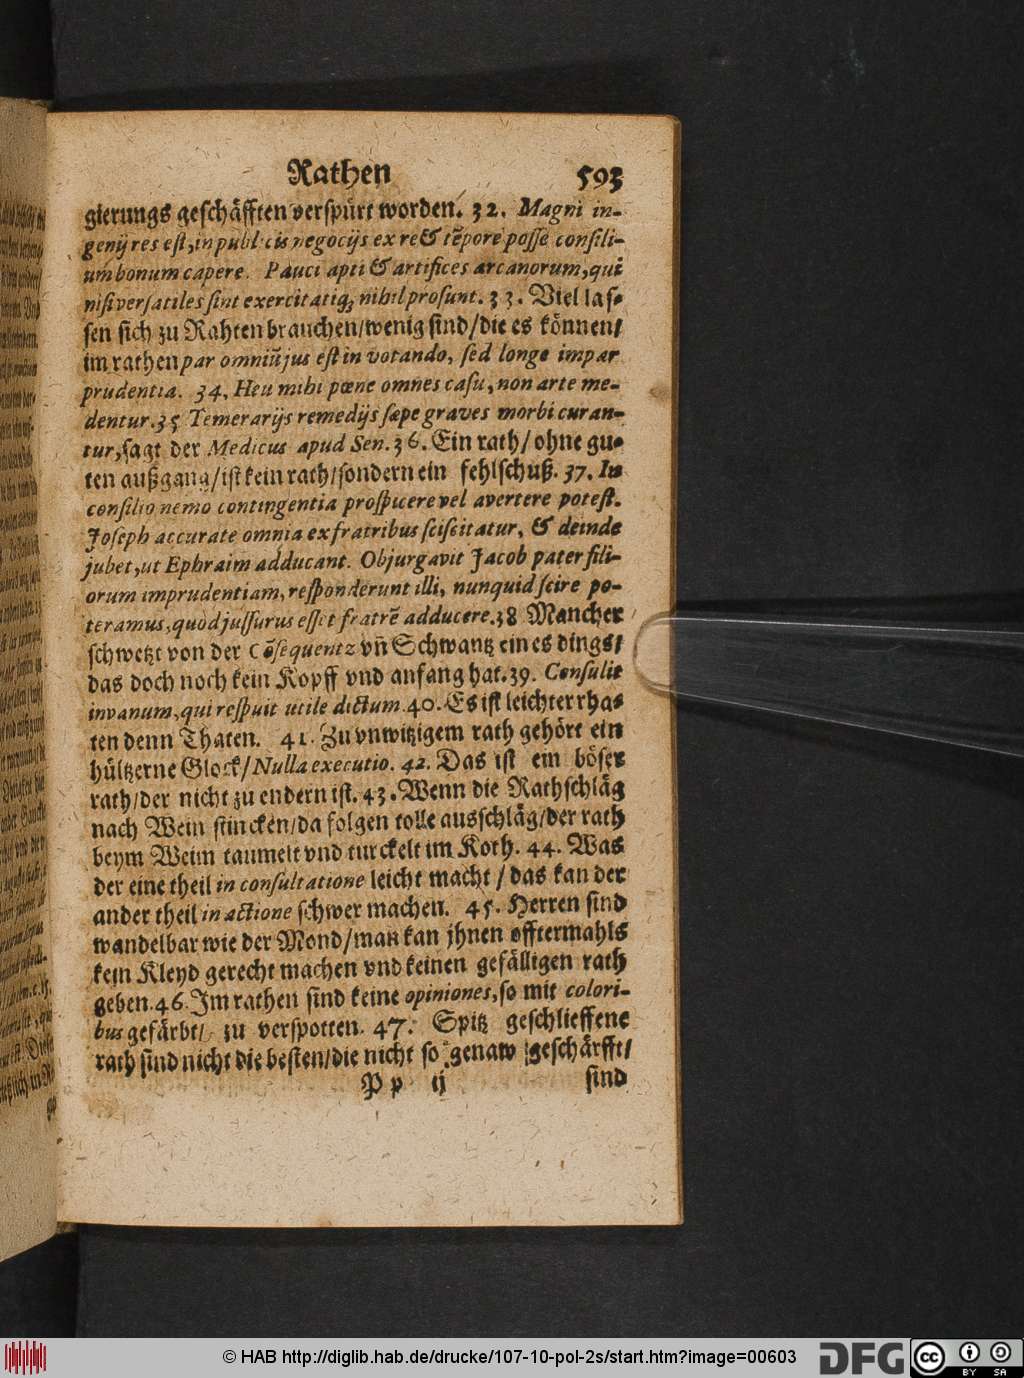 Rathen 593
gierungs geschäfften verspürt worden. 32. Magni in-
genij res est, in publicis negocijs ex re & tẽpore posse consili-
um bonum capere. Pauci apti & artifices arcanorum, qui
nisi versatiles sint exercitatiq; nihil prosunt. 33. Viel las-
sen sich zu Rahten brauchen/wenig sind/die es können/
im rathen par omniũ jus est in votando, sed longe impar
prudentia. 34. Heu mihi pœne omnes casu, non arte me-
dentur. 35 Temerarijs remedijs sæpe graves morbi curan-
tur, sagt der Medicus apud Sen. 36. Ein rath/ohne gu-
ten außgang/ist kein rath/sondern ein fehlschuß. 37. In
consilio nemo contingentia prospicere vel avertere potest.
Joseph accurate omnia ex fratribus sciscitatur, & deinde
jubet, ut Ephraim adducant. Objurgavit Jacob pater fili-
orum imprudentiam, responderunt illi, nunquid scire po-
teramus, quod jussurus esset fratrẽ adducere. 38 Mancher
schwetzt von der Cõsequentz vñ Schwantz eines dings/
das doch noch kein Kopff vnd anfang hat. 39. Consulit
in vanum, qui respuit utile dictum. 40. Es ist leichter rha-
ten denn Thaten. 41. Zu vnwitzigem rath gehört ein
hültzerne Glock/Nulla executio. 42. Das ist ein böser
rath/der nicht zu endern ist. 43. Wenn die Rathschläg
nach Wein stincken/da folgen tolle ausschläg/der rath
beym Weim taumelt vnd turckelt im Koth. 44. Was
der eine theil in consultatione leicht macht/das kan der
ander theil in actione schwer machen. 45. Herren sind
wandelbar wie der Mond/man kan jhnen offtermahls
kein Kleyd gerecht machen vnd keinen gefälligen rath
geben. 46. Im rathen sind keine opiniones, so mit colori-
bus gefärbt/ zu verspotten. 47. Spitz geschlieffene
rath sind nicht die besten/die nicht so genaw geschärfft/
Pp ij sind
© HAB http://diglib.hab.de/drucke/107-10-pol-2s/start.htm?image=00603
DFG
cc BY SA